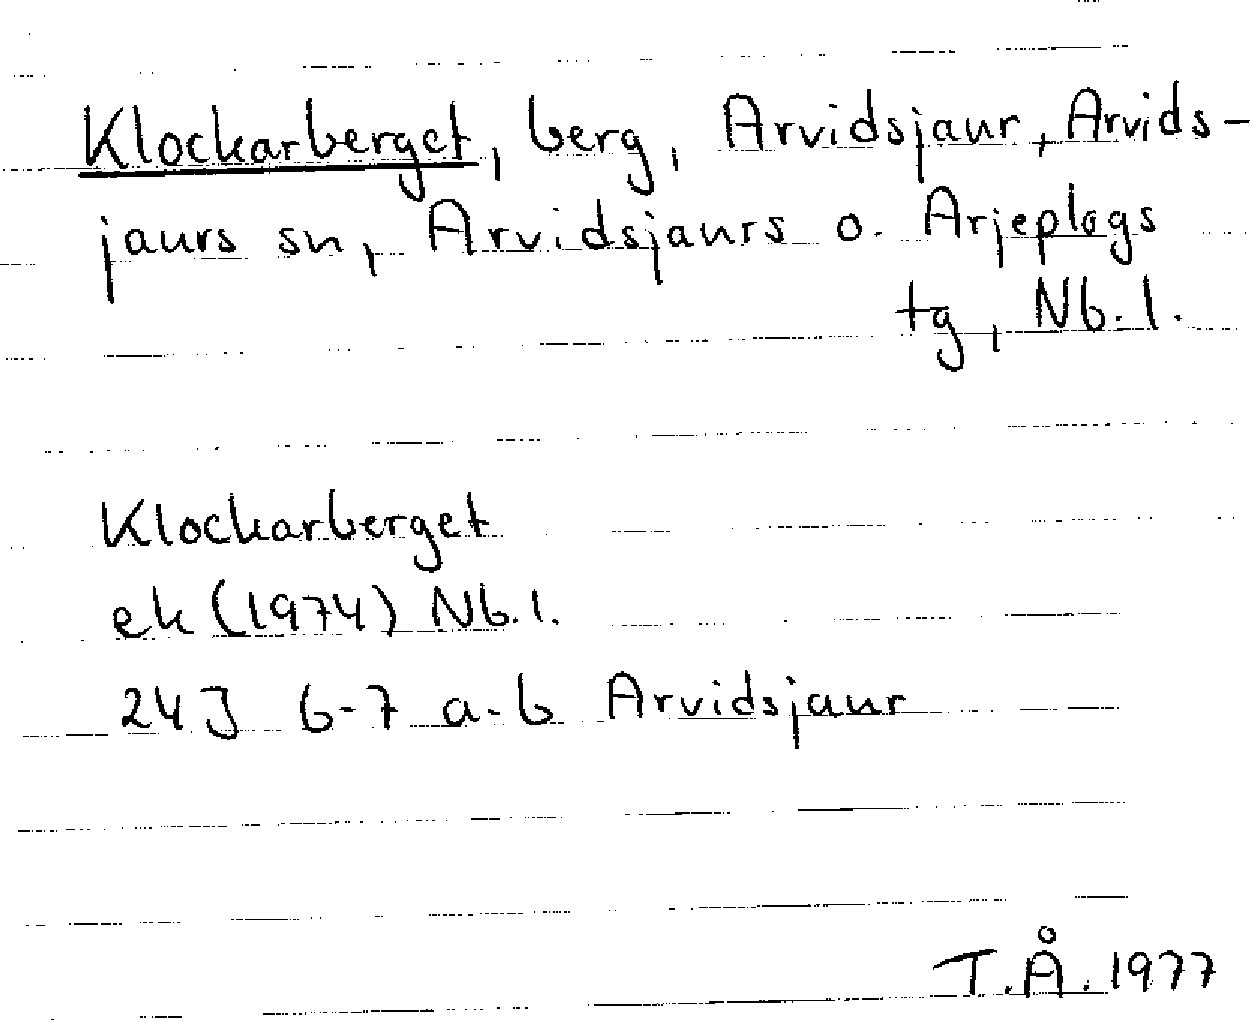 Klockarberget, berg, Arvidsjaur, Arvids-
jaurs sn, Arvidsjaurs o. Arjeplogs
tg, Nb. l.
Klockarberget
ek (1974) Nb. l.
24J 6-7 a-b Arvidsjaur
T.Å. 1977